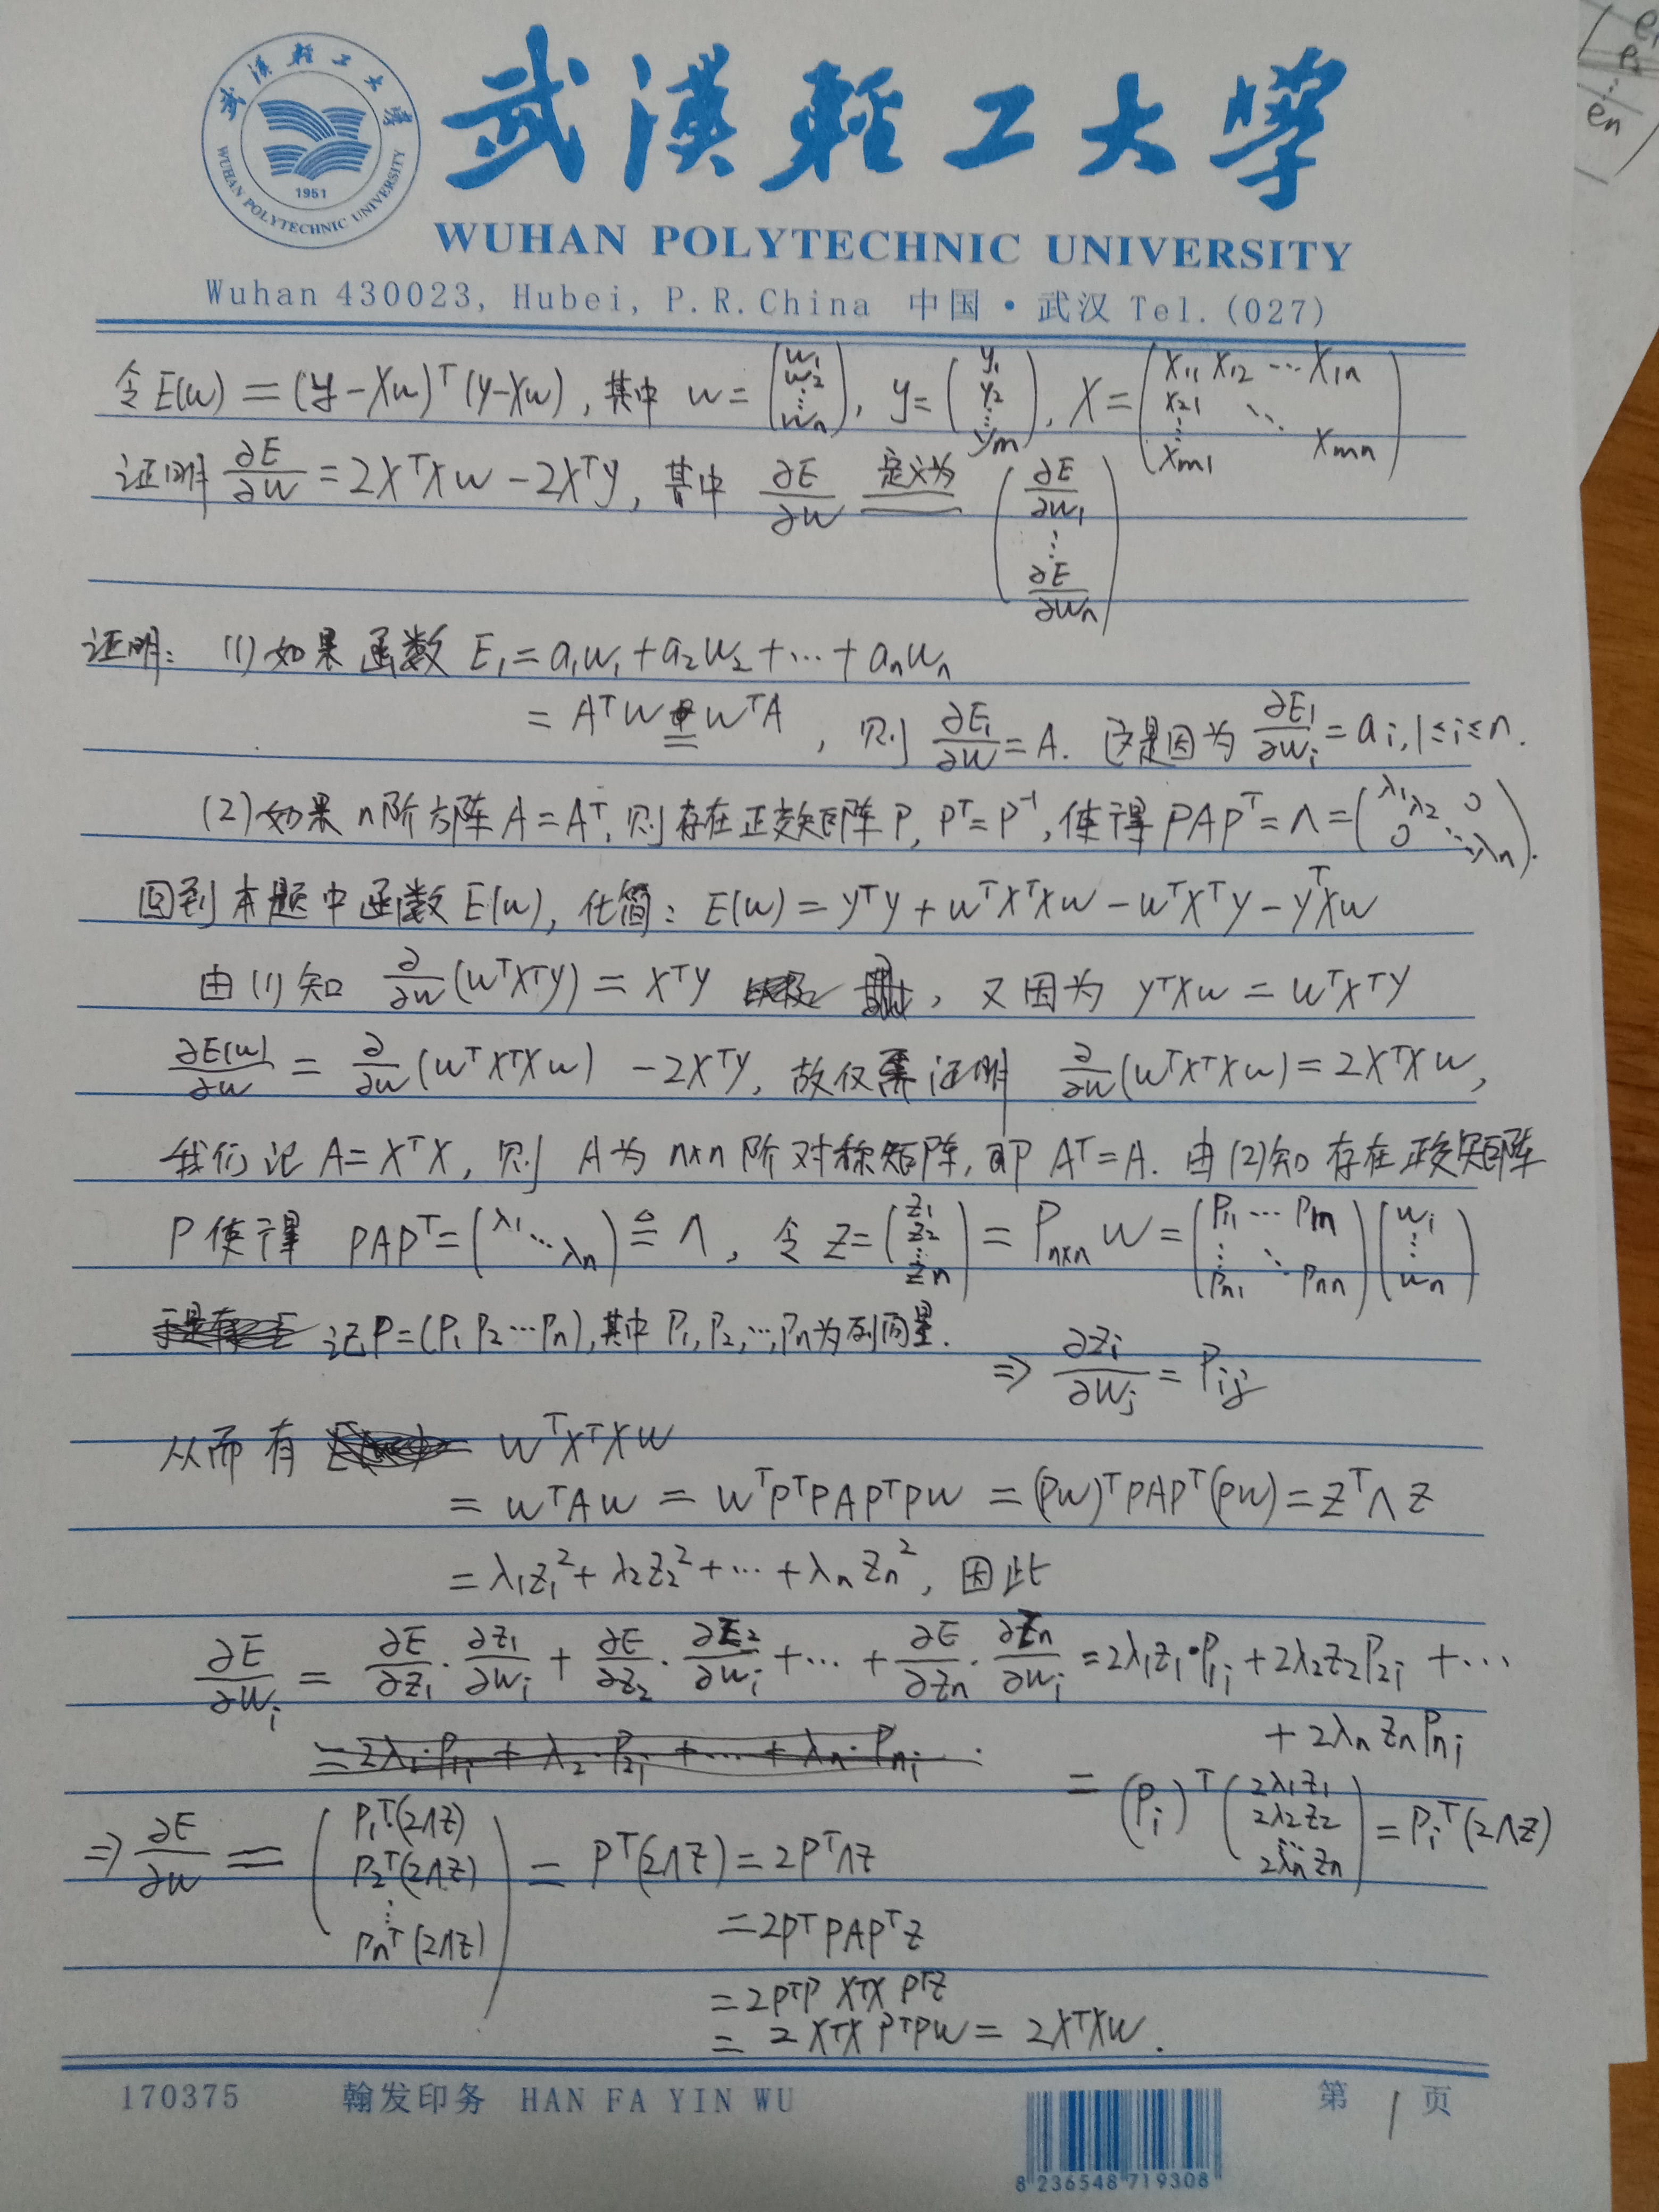 武漢輕工大學
WUHAN POLYTECHNIC UNIVERSITY
1951
武漢輕工大學
WUHAN POLYTECHNIC UNIVERSITY
Wuhan 430023, Hubei, P.R.China 中国·武汉 Tel.(027)
e₂
⋮
eₙ
令 E(w) = (y-Xw)ᵀ(y-Xw), 其中 w = (w₁ w₂ ⋮ wₙ), y = (y₁ y₂ ⋮ yₘ), X = (x₁₁ x₁₂ ⋯ x₁ₙ x₂₁ ⋱ ⋮ xₘ₁ xₘₙ)
证明 ∂E/∂w = 2XᵀXw - 2Xᵀy, 其中 ∂E/∂w 定义为 (∂E/∂w₁ ⋮ ∂E/∂wₙ)
证明: (1) 如果函数 E₁ = a₁w₁ + a₂w₂ + ⋯ + aₙwₙ
= Aᵀw = wᵀA, 则 ∂E₁/∂w = A. 这是因为 ∂E₁/∂wᵢ = aᵢ, 1≤i≤n.
(2) 如果 n阶方阵 A = Aᵀ, 则存在正交矩阵 P, Pᵀ = P⁻¹, 使得 PAPᵀ = Λ = (λ₁ λ₂ 0 0 ⋱ λₙ).
回到本题中函数 E(w), 化简: E(w) = yᵀy + wᵀXᵀXw - wᵀXᵀy - yᵀXw
由(1)知 ∂/∂w (wᵀXᵀy) = Xᵀy, 又因为 yᵀXw = wᵀXᵀy
∂E(w)/∂w = ∂/∂w (wᵀXᵀXw) - 2Xᵀy, 故仅需证明 ∂/∂w (wᵀXᵀXw) = 2XᵀXw,
我们记 A = XᵀX, 则 A为 n×n 阶对称矩阵, 即 Aᵀ = A. 由(2)知存在正交矩阵
P 使得 PAPᵀ = (λ₁ ⋱ λₙ) ≜ Λ, 令 Z = (z₁ z₂ ⋮ zₙ) = Pₙₓₙ w = (p₁₁ ⋯ p₁ₙ ⋮ ⋱ pₙ₁ pₙₙ)(w₁ ⋮ wₙ)
记 P = (P₁ P₂ ⋯ Pₙ), 其中 P₁, P₂, ⋯, Pₙ 为列向量.
⇒ ∂zᵢ/∂wⱼ = Pᵢⱼ
从而有 wᵀXᵀXw
= wᵀAw = wᵀPᵀPAPᵀPw = (Pw)ᵀPAPᵀ(Pw) = ZᵀΛZ
= λ₁z₁² + λ₂z₂² + ⋯ + λₙzₙ², 因此
∂E/∂wᵢ = ∂E/∂z₁ · ∂z₁/∂wᵢ + ∂E/∂z₂ · ∂z₂/∂wᵢ + ⋯ + ∂E/∂zₙ · ∂zₙ/∂wᵢ = 2λ₁z₁·P₁ᵢ + 2λ₂z₂P₂ᵢ + ⋯
+ 2λₙzₙPₙᵢ
= 2λ₁·P₁ᵢ + λ₂·P₂ᵢ + ⋯ + λₙ·Pₙᵢ
= (Pᵢ)ᵀ (2λ₁z₁ 2λ₂z₂ ⋮ 2λₙzₙ) = Pᵢᵀ(2ΛZ)
⇒ ∂E/∂w = (P₁ᵀ(2ΛZ) P₂ᵀ(2ΛZ) ⋮ Pₙᵀ(2ΛZ)) = Pᵀ(2ΛZ) = 2PᵀΛZ
= 2PᵀPAPᵀZ
= 2PᵀP XᵀX PᵀZ
= 2XᵀX PᵀPw = 2XᵀXw.
170375 翰发印务 HAN FA YIN WU 第 1 页
8 236548 719308